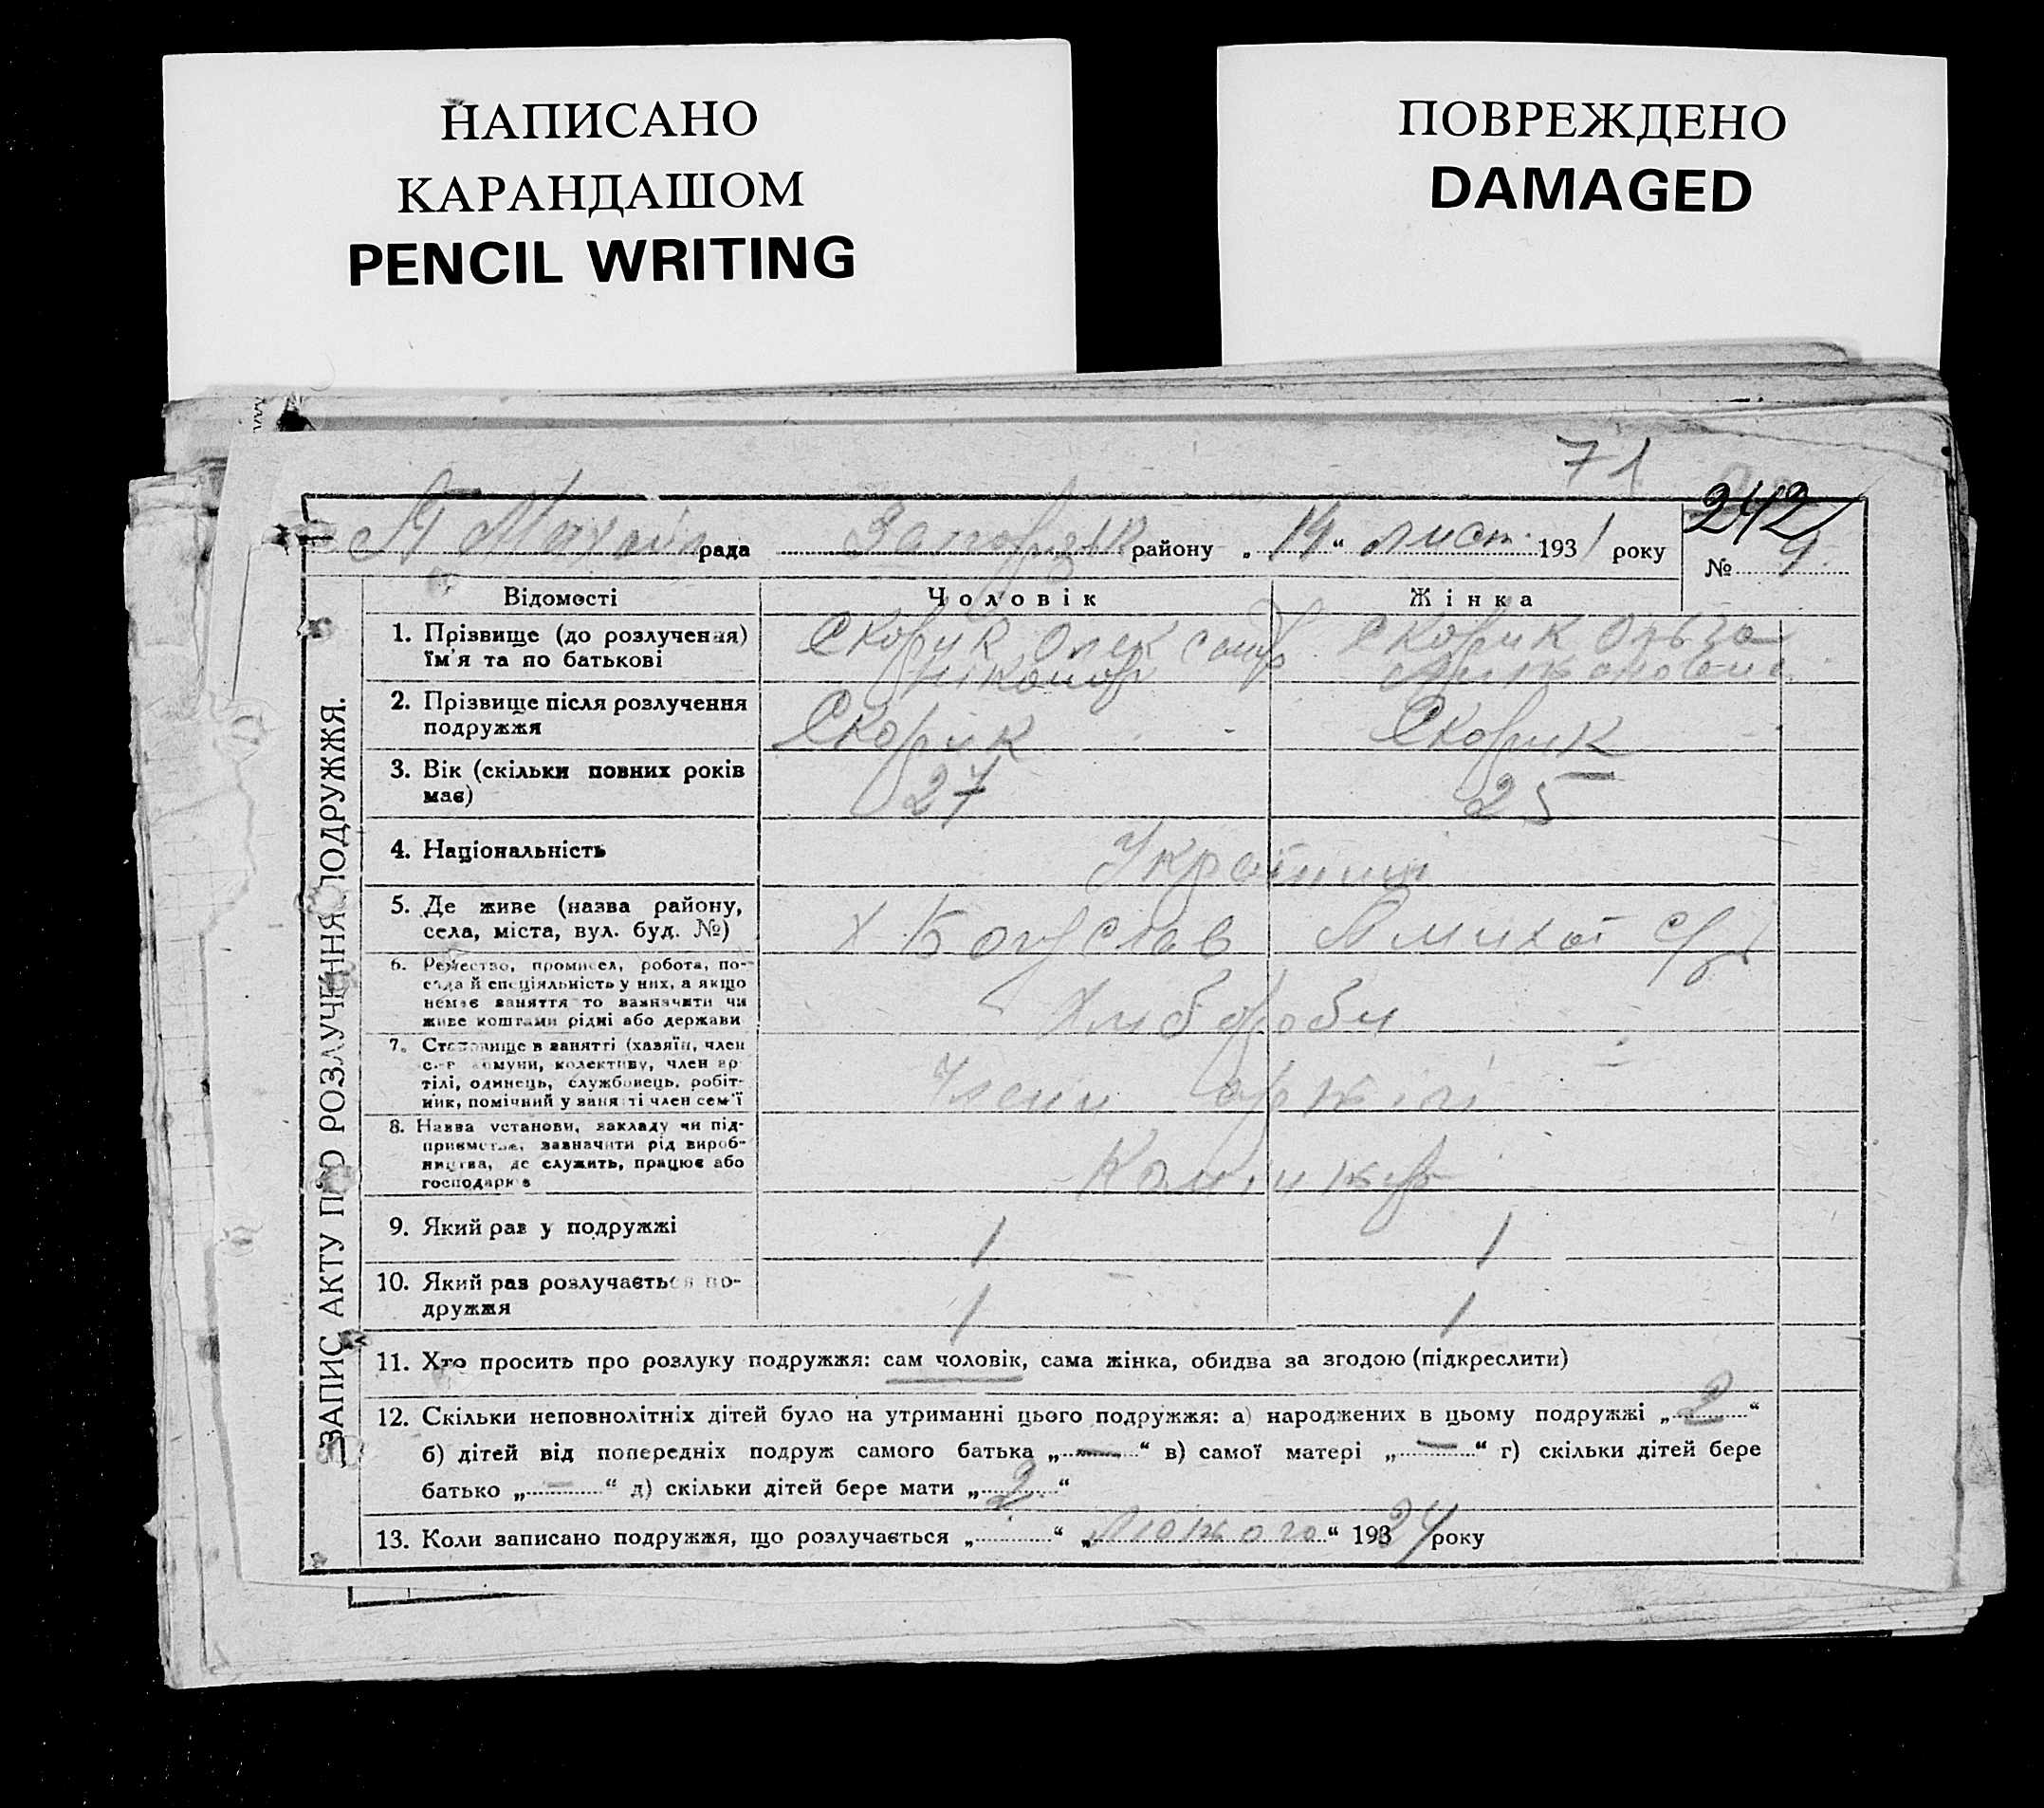 НАПИСАНО
КАРАНДАШОМ
PENCIL WRITING
ПОВРЕЖДЕНО
DAMAGED
71
242
рада Запорізьк району „14“ лист. 1931 року
№ 9
ЗАПИС АКТУ ПРО РОЗЛУЧЕННЯ ПОДРУЖЖЯ.
Відомості Чоловік Жінка
1. Прізвище (до розлучення) Скорик Олександр Скорик Ольга
їм'я та по батькові Ніканор
2. Прізвище після розлучення Скорик Скорик
подружжя
3. Вік (скільки повних років 27 25
має)
4. Національність Українці
5. Де живе (назва району, х Богуслав
села, міста, вул. буд. №)
6. Ремество, промисел, робота, по-
сада й спеціяльність у них, а якщо
немає заняття то зазначити чи Хлібороби
живе коштами рідні або держави
7. Становище в занятті (хазяїн, член
с.-г. комуни, колективу, член ар-
тілі, одинець, службовець, робіт- Члени артілі
ник, помічний у занятті член сем'ї
8. Назва установи, закладу чи під-
приємства, зазначити рід вироб-
ництва, де служить, працює або Комінтерн
господарює
9. Який раз у подружжі 1 1
10. Який раз розлучається по- 1 1
дружжя
11. Хто просить про розлуку подружжя: сам чоловік, сама жінка, обидва за згодою (підкреслити)
12. Скільки неповнолітніх дітей було на утриманні цього подружжя: а) народжених в цьому подружжі „2“
б) дітей від попередніх подруж самого батька „—“ в) самої матері „—“ г) скільки дітей бере
батько „—“ д) скільки дітей бере мати „2“
13. Коли записано подружжя, що розлучається „ “ „Лютого“ 193 24 року